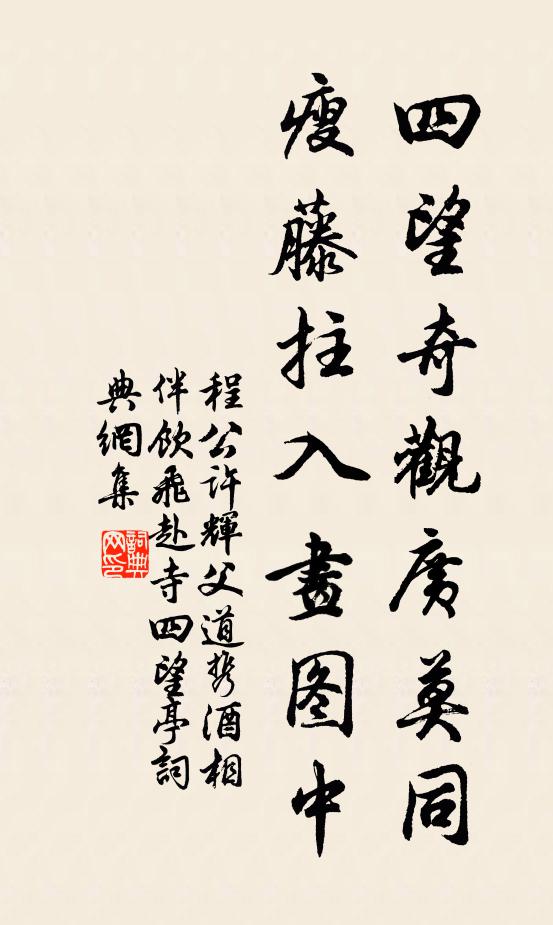 四望奇觀廣莫同
瘦藤拄入畫图中
程公許輝父道携酒相
伴飲飛赴寺四望亭詞
典網集
詞典
网印